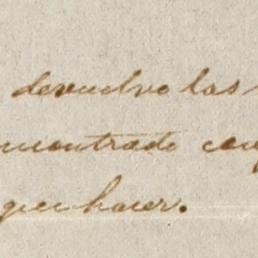 devuelvo las
encontrado con
que hacer.